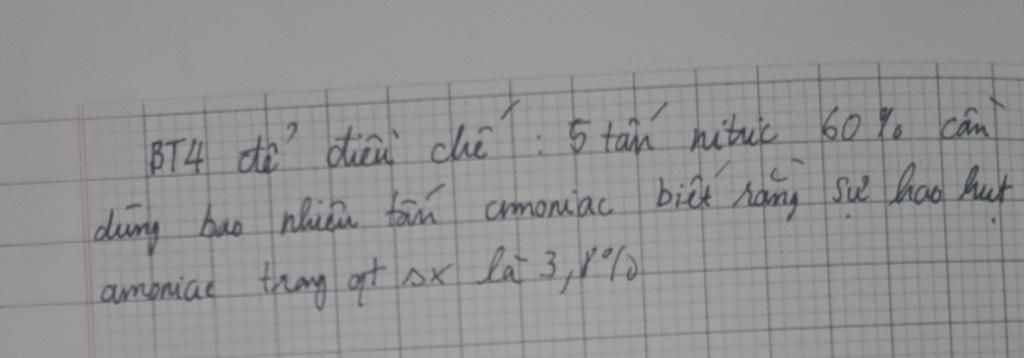 BT4 để điều chế : 5 tấn nitric 60% cần
dùng bao nhiêu tấn amoniac biết rằng sự hao hụt
amoniac trong qt sx là 3,8%